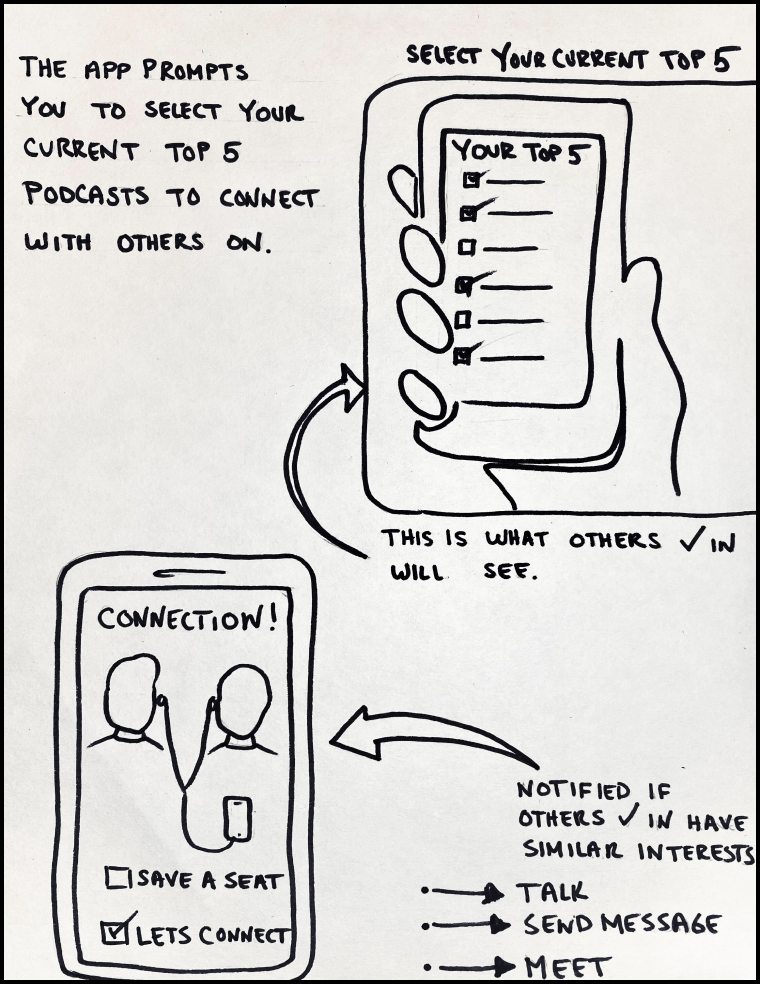 THE APP PROMPTS
YOU TO SELECT YOUR
CURRENT TOP 5
PODCASTS TO CONNECT
WITH OTHERS ON.
SELECT YOUR CURRENT TOP 5
YOUR TOP 5
THIS IS WHAT OTHERS ✓ IN
WILL SEE.
CONNECTION!
SAVE A SEAT
LETS CONNECT
NOTIFIED IF
OTHERS ✓ IN HAVE
SIMILAR INTERESTS
TALK
SEND MESSAGE
MEET